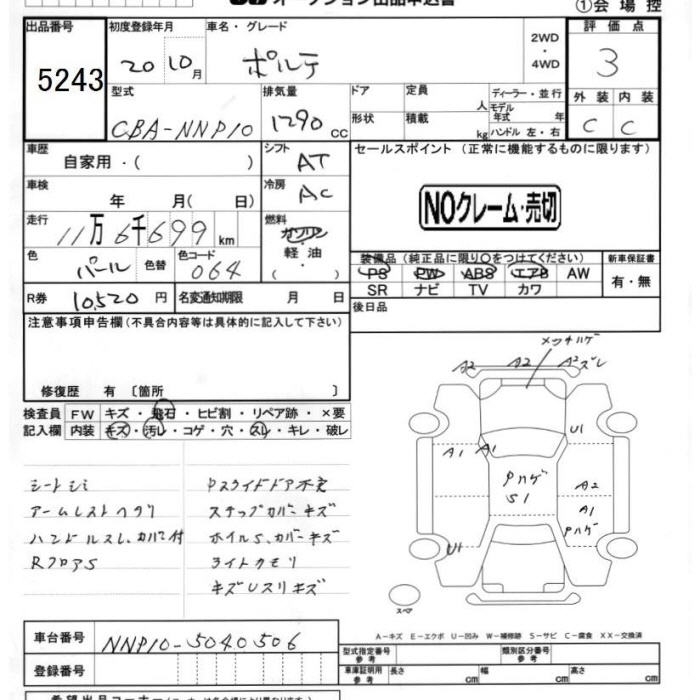 オークション出品申込書 ①会場控
出品番号 初度登録年月 車名・グレード 2WD ・ 4WD 評価点
5243 20 10月 ポルテ 3
型式 排気量 ドア 定員 人 ディーラー・並行
CBA-NNP10 1290 cc 形状 積載 kg モデル年式 年 ハンドル 左・右
外装 内装
C C
車歴 自家用・( ) シフト AT セールスポイント (正常に機能するものに限ります)
車検 年 月( 日) 冷房 AC NOクレーム・売切
走行 11万6千699 km 燃料 ガソリン 軽油 ・( )
色 パール 色替 色コード 064
装備品 (純正品に限り○をつけてください) 新車保証書
PS PW ABS エアB AW 有・無
SR ナビ TV カワ
R券 10,520 円 名変通知期限 月 日 後日品
注意事項申告欄 (不具合内容等は具体的に記入して下さい)
修復歴 有 〔箇所 〕
検査員 FW キズ・飛石・ヒビ割・リペア跡・×要
記入欄 内装 キズ・汚レ・コゲ・穴・スレ・キレ・破レ
シートシミ
アームレストヘタリ
ハンドルスレ、カバー付
RフロアS
Pスライドドア不良
ステップカバーキズ
ホイルS、カバーキズ
ライトクモリ
キズUスリキズ
メッキハゲ
A2 A2 A2ズレ
U1
A1 A1
Pハゲ
S1
A2
A1
Pハゲ
U1
スペア
A－キズ E－エクボ U－凹み W－補修跡 S－サビ C－腐食 XX－交換済
車台番号 NNP10-5040506
登録番号
型式指定番号 参考 類別区分番号 参考
車庫証明用 参考 長さ cm 幅 cm 高さ cm
希望出品コーナー